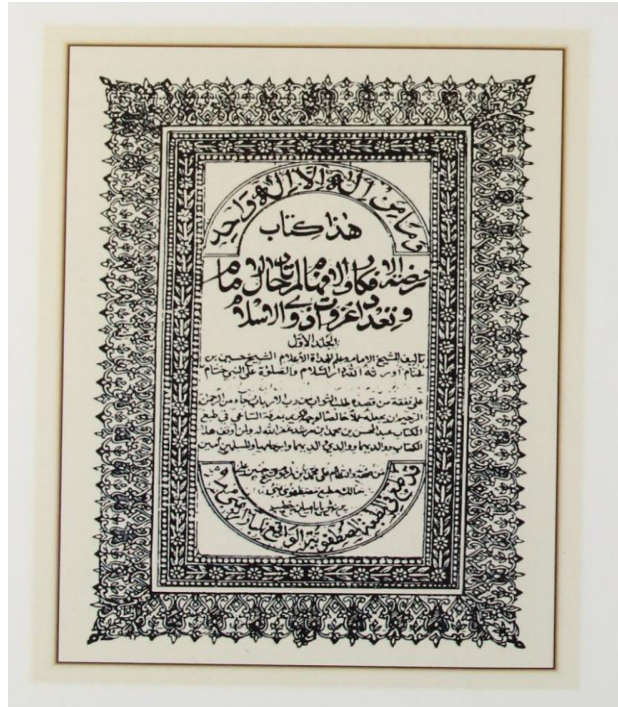 وما من إله إلا إله واحد
هذا كتاب
روضة الافكار والافهام لمرتاد حال الامام
وتعداد غزوات ذوي الاسلام
الجلد الاول
تأليف الشيخ الامام وعلم الهداة الأعلام الشيخ حسين بن
غنام أورثه الله دار السلام والصلوة على النبي ختام
على نفقة من قصده طلب الثواب من رب الارباب
الرحيم ان يجعله عملا خالصا لوجهه الكريم بمعرفة الساعي في طبع
الكتاب عبد المحسن بن محمد بن مرشد غفر الله له ولمن أوقف هذا
الكتاب ووالديهما ووالدي والديهما والمسلمين آمين
مالك مطبع مصطفوي